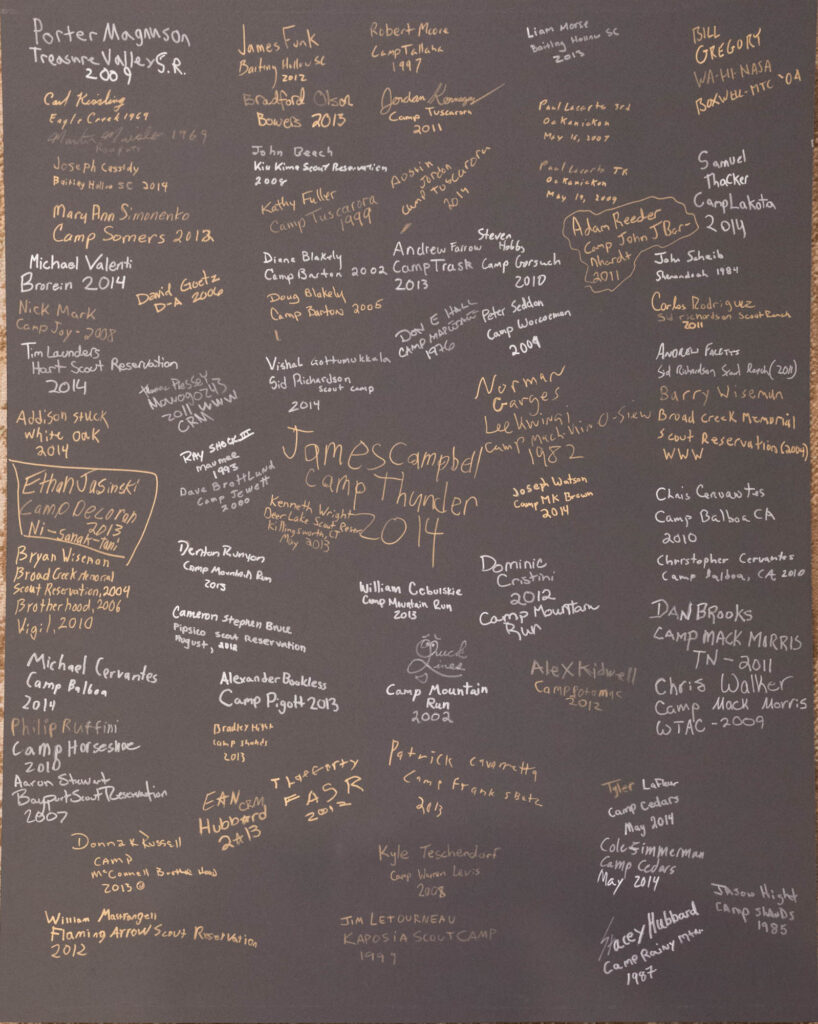 Porter Magnuson
Treasure Valley S.R.
2009
James Funk
Baiting Hollow SC
2012
Robert Moore
Camp Tallaha
1997
Liam Morse
Baiting Hollow SC
2013
BILL
GREGORY
WA-HI-NASA
BOXWELL-MTC '04
Carl Kissling
Eagle Creek 1969
1969
Bradford Olson
Bowers 2013
Jordan
Camp Tuscarora
2011
Paul Locarto 3rd
Ockanickon
May 16, 2007
Joseph Cassidy
Baiting Hollow SC 2014
John Beach
Kia Kima Scout Reservation
2008
Austin
Jordon
Camp Tuscarora
2014
Paul Locarto JR
Ockanickon
May 19, 2009
Samuel
Thacker
Camp Lakota
2014
Mary Ann Simonenko
Camp Somers 2012
Kathy Fuller
Camp Tuscarora
1999
Adam Reeder
Camp John J Bar-
nhardt
2011
Michael Valenti
Brorein 2014
David Goetz
D-A 2006
Diane Blakely
Camp Barton 2002
Andrew Farrow
Camp Trask
2013
Steven
Hobbs
Camp Gorsuch
2010
John Scheib
Shenandoah 1984
Nick Mark
Camp Joy - 2008
Doug Blakely
Camp Barton 2005
DON E HALL
CAMP
1976
Peter Seddon
Camp Workcoeman
2009
Carlos Rodriguez
Sid richardson Scout Ranch
2011
Tim Launders
Hart Scout Reservation
2014
Plessey
Mawogo243
2011 WWW
CRM
Vishal Gottumukkala
Sid Richardson
Scout camp
2014
Norman
Garges
Lee Hwingi
Camp Mach Kin-O-Siew
1982
ANDREW
Sid Richardson Scout Ranch (2011)
Barry Wiseman
Broad Creek Memorial
Scout Reservation (2004)
WWW
Addison Stuck
White Oak
2014
RAY SHOCK III
Maumee
1993
Dave Brottlund
Camp Jewett
2000
James Campbell
Camp Thunder
2014
Kenneth Wright
Deer Lake Scout Reserv
Killingsworth, CT
May 2013
Joseph Watson
Camp MK Brown
2014
Ethan Jasinski
Camp Decorah
2013
Ni-Sanak-Tani
Chris Cervantes
Camp Balboa CA
2010
Bryan Wiseman
Broad Creek Memorial
Scout Reservation, 2004
Brotherhood, 2006
Vigil, 2010
Denton Runyon
Camp Mountain Run
2013
William Ceburskie
Camp Mountain Run
2013
Dominic
Cristini
2012
Camp Mountain
Run
Christopher Cervantes
Camp Balboa, CA 2010
Cameron Stephen Bruce
Pipsico Scout Reservation
August, 2012
DAN BROOKS
CAMP MACK MORRIS
TN - 2011
Michael Cervantes
Camp Balboa
2014
Alexander Bookless
Camp Pigott 2013
Chuck
Lines
Camp Mountain
Run
2002
Alex Kidwell
Camp Potomac
2012
Chris Walker
Camp Mack Morris
WTAC - 2009
Philip Ruffini
Camp Horseshoe
2010
Bradley Hight
Camp Shands
2013
Aaron Stewart
Bayport Scout Reservation
2007
EAN CRM
Hubbard
2013
T Hagerty
FASR
2012
Patrick Cavarretta
Camp Frank S Betz
2013
Tyler LaFleur
Camp Cedars
May 2014
Donna K Russell
CAMP
McConnell Brother Hood
2013
Kyle Teschendorf
Camp Warren Levis
2008
Cole Simmerman
Camp Cedars
May 2014
William
Flaming Arrow Scout Reservation
2012
JIM LETOURNEAU
KAPOSIA SCOUT CAMP
1997
Stacey Hubbard
Camp Rainey Mtn
1987
Jason Hight
Camp Shands
1985